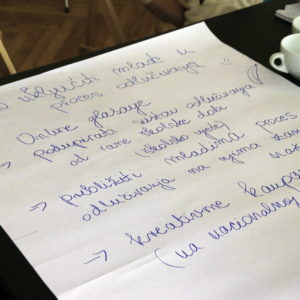 uključiti mlade u
proces odlučivanja
Online glasanje
→ Podupirati kulturu odlučivanja
od rane školske dobi
(školsko vijeće)
→ približiti mladima proces
odlučivanja na njima
→ kreativne
(na nacionalnoj